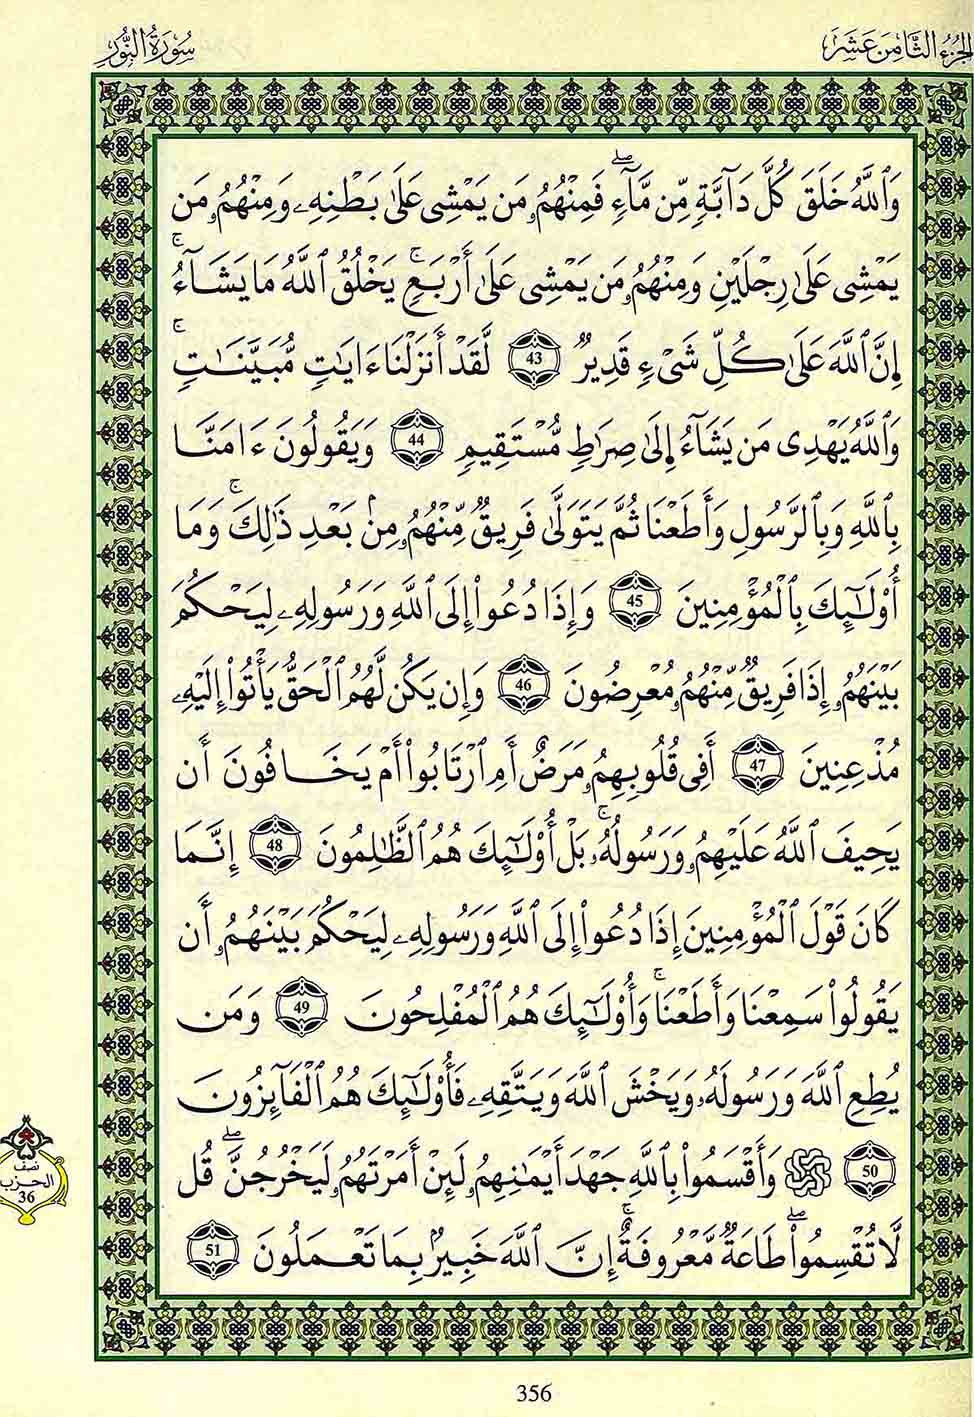 الجزء الثامن عشر
سُورَةُ النُّور
وَٱللَّهُ خَلَقَ كُلَّ دَآبَّةٖ مِّن مَّآءٖۖ فَمِنْهُمُۥ مَن يَمْشِى عَلَىٰ بَطْنِهِۦ وَمِنْهُمُۥ مَن
يَمْشِى عَلَىٰ رِجْلَيْنِ وَمِنْهُمُۥ مَن يَمْشِى عَلَىٰ أَرْبَعٖۚ يَخْلُقُ ٱللَّهُ مَا يَشَآءُۚ
إِنَّ ٱللَّهَ عَلَىٰ كُلِّ شَىْءٖ قَدِيرٞ 43 لَّقَدْ أَنزَلْنَا ءَايَٰتٖ مُّبَيَّنَٰتٖۚ
وَٱللَّهُ يَهْدِى مَن يَشَآءُ إِلَىٰ صِرَٰطٖ مُّسْتَقِيمٖ 44 وَيَقُولُونَ ءَامَنَّا
بِٱللَّهِ وَبِٱلرَّسُولِ وَأَطَعْنَا ثُمَّ يَتَوَلَّىٰ فَرِيقٞ مِّنْهُمُۥ مِنۢ بَعْدِ ذَٰلِكَۚ وَمَا
أُوْلَٰٓئِكَ بِٱلْمُؤْمِنِينَ 45 وَإِذَا دُعُوٓاْ إِلَى ٱللَّهِ وَرَسُولِهِۦ لِيَحْكُمَ
بَيْنَهُمُۥ إِذَا فَرِيقٞ مِّنْهُمُۥ مُعْرِضُونَ 46 وَإِن يَكُن لَّهُمُ ٱلْحَقُّ يَأْتُوٓاْ إِلَيْهِۦ
مُذْعِنِينَ 47 أَفِى قُلُوبِهِمُۥ مَرَضٌ أَمِ ٱرْتَابُوٓاْ أَمْ يَخَافُونَ أَن
يَحِيفَ ٱللَّهُ عَلَيْهِمُۥ وَرَسُولُهُۥۚ بَلْ أُوْلَٰٓئِكَ هُمُ ٱلظَّٰلِمُونَ 48 إِنَّمَا
كَانَ قَوْلَ ٱلْمُؤْمِنِينَ إِذَا دُعُوٓاْ إِلَى ٱللَّهِ وَرَسُولِهِۦ لِيَحْكُمَ بَيْنَهُمُۥ أَن
يَقُولُواْ سَمِعْنَا وَأَطَعْنَاۚ وَأُوْلَٰٓئِكَ هُمُ ٱلْمُفْلِحُونَ 49 وَمَن
يُطِعِ ٱللَّهَ وَرَسُولَهُۥ وَيَخْشَ ٱللَّهَ وَيَتَّقِهِۦ فَأُوْلَٰٓئِكَ هُمُ ٱلْفَآئِزُونَ
50 ۞ وَأَقْسَمُواْ بِٱللَّهِ جَهْدَ أَيْمَٰنِهِمُۥ لَئِنْ أَمَرْتَهُمُۥ لَيَخْرُجُنَّۖ قُل
لَّا تُقْسِمُواْۖ طَاعَةٞ مَّعْرُوفَةٌۚ إِنَّ ٱللَّهَ خَبِيرُۢ بِمَا تَعْمَلُونَ 51
نصف
الحزب
36
356